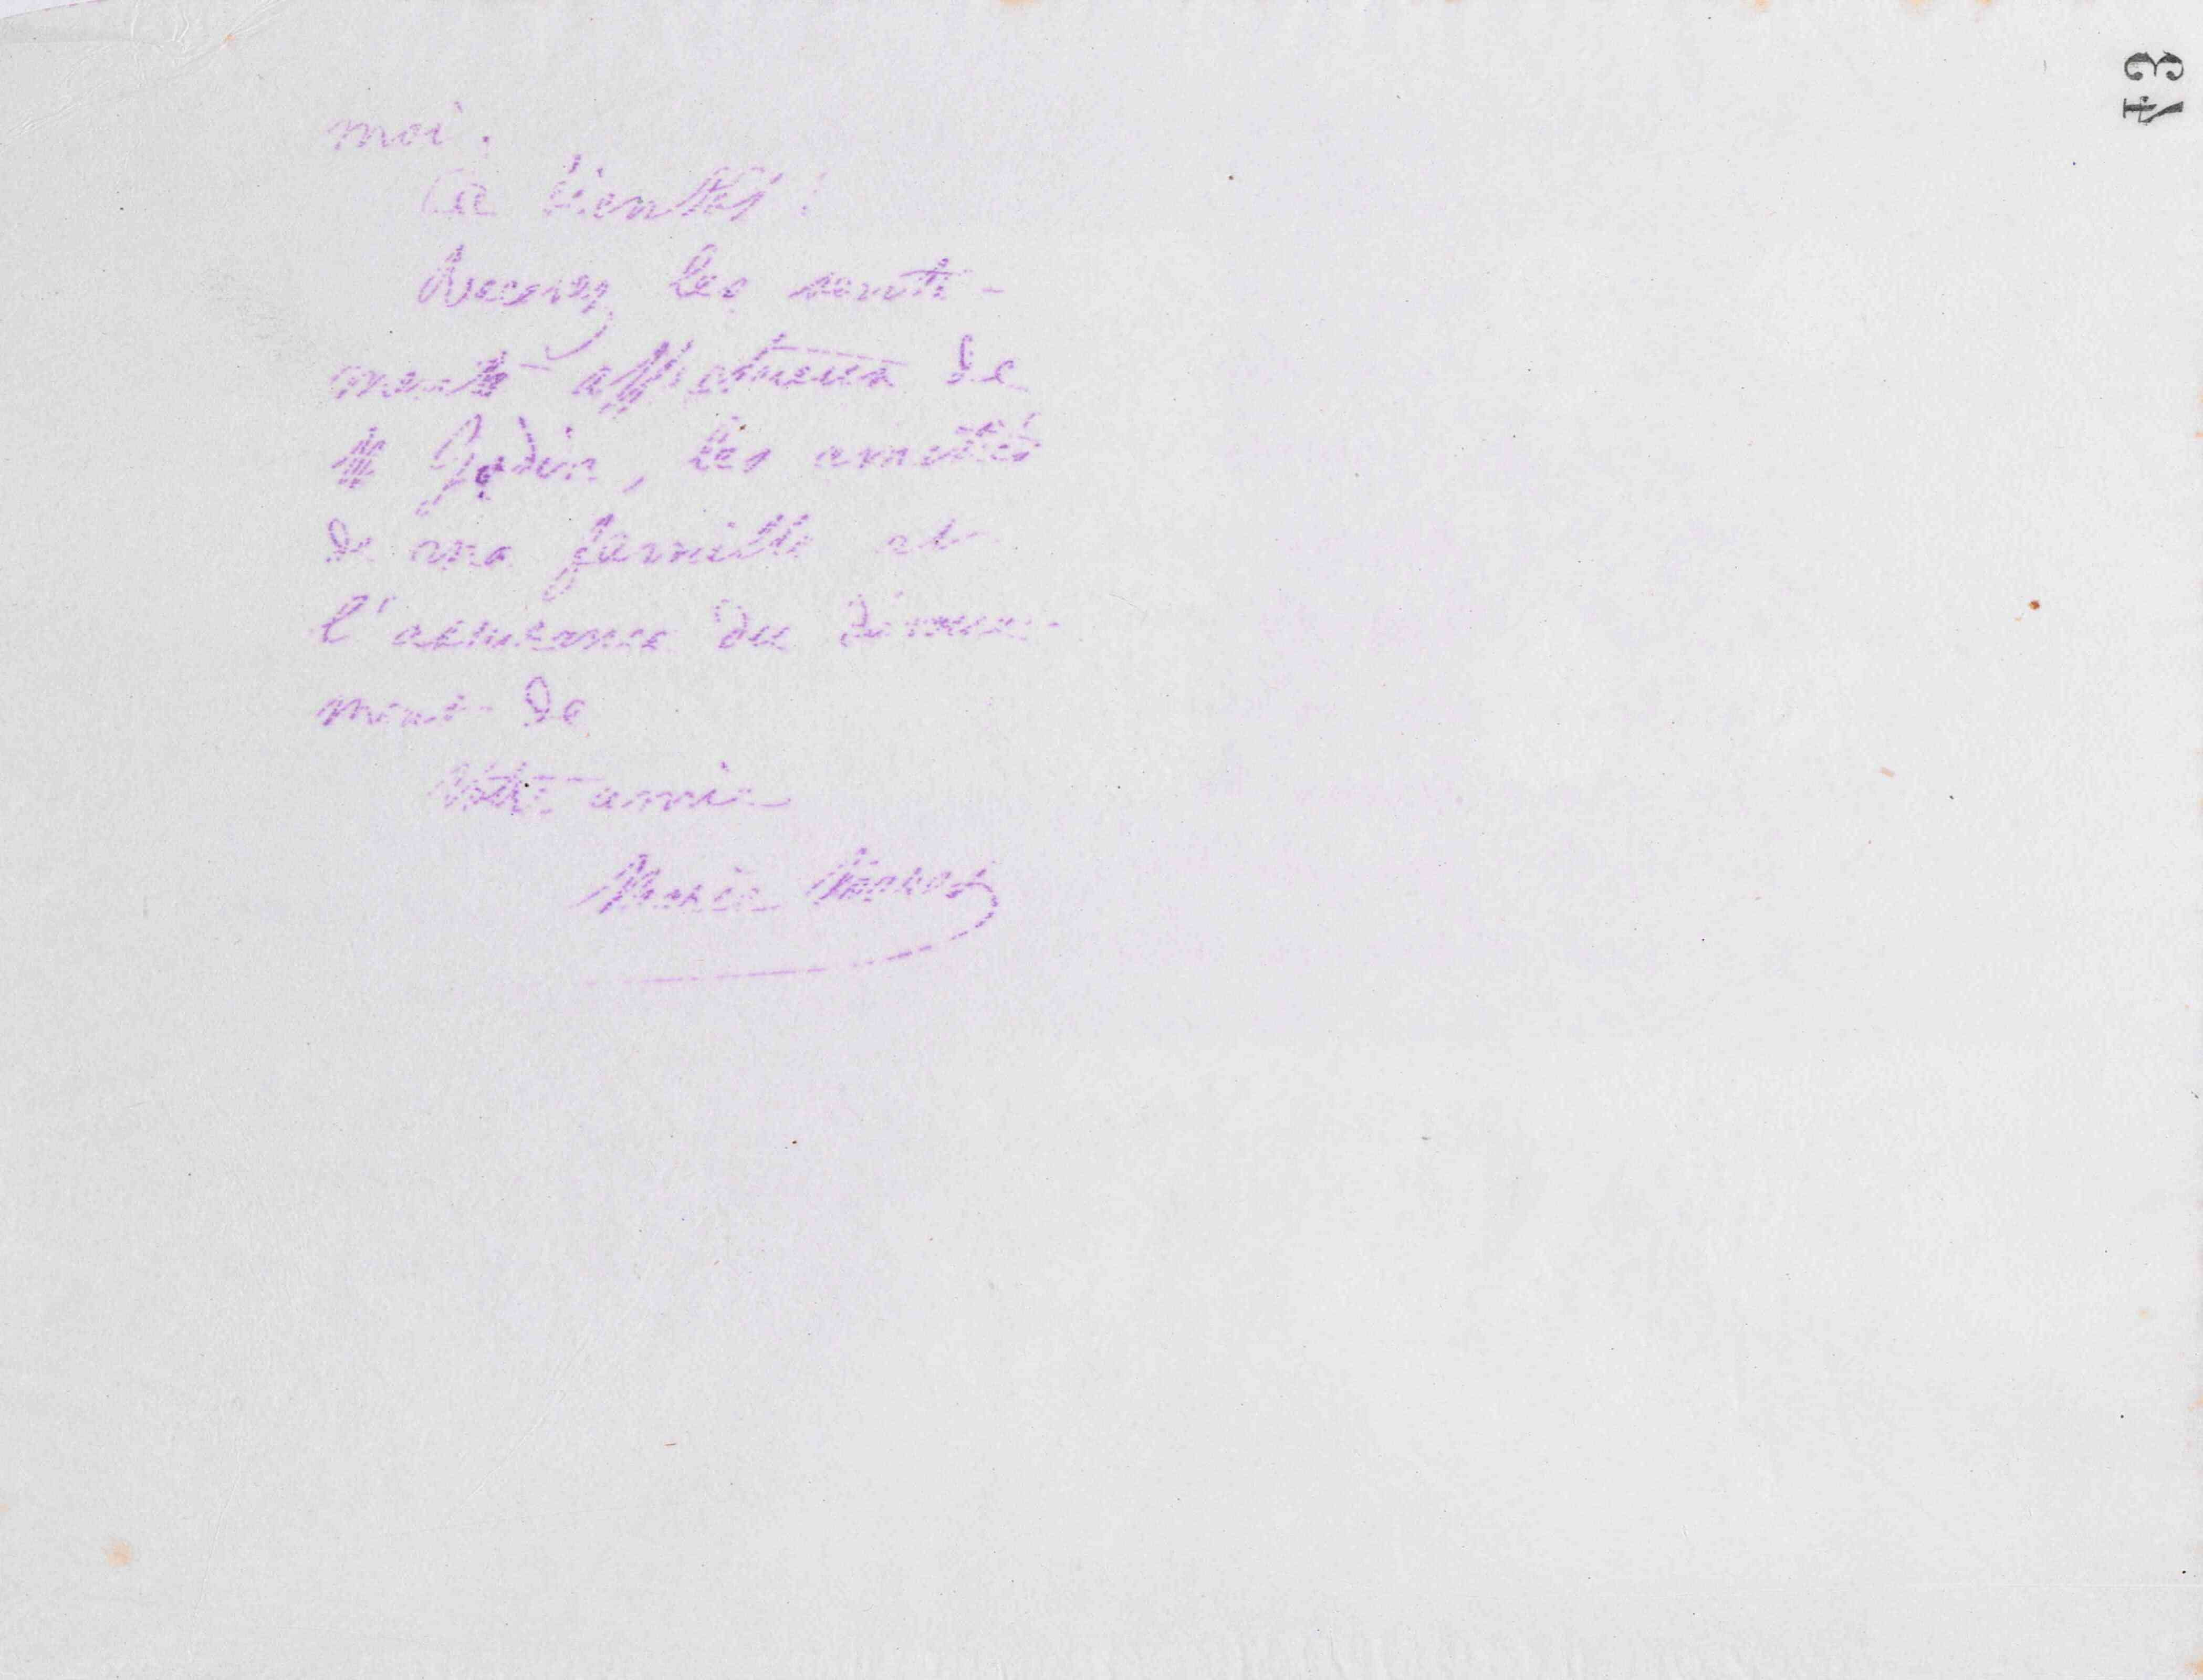 moi.
A bientôt !
Recevez les senti-
ments affectueux de
M Godin, les amitiés
de ma famille et
l'assurance du dévoue-
ment de
Votre amie
Marie Moret
43